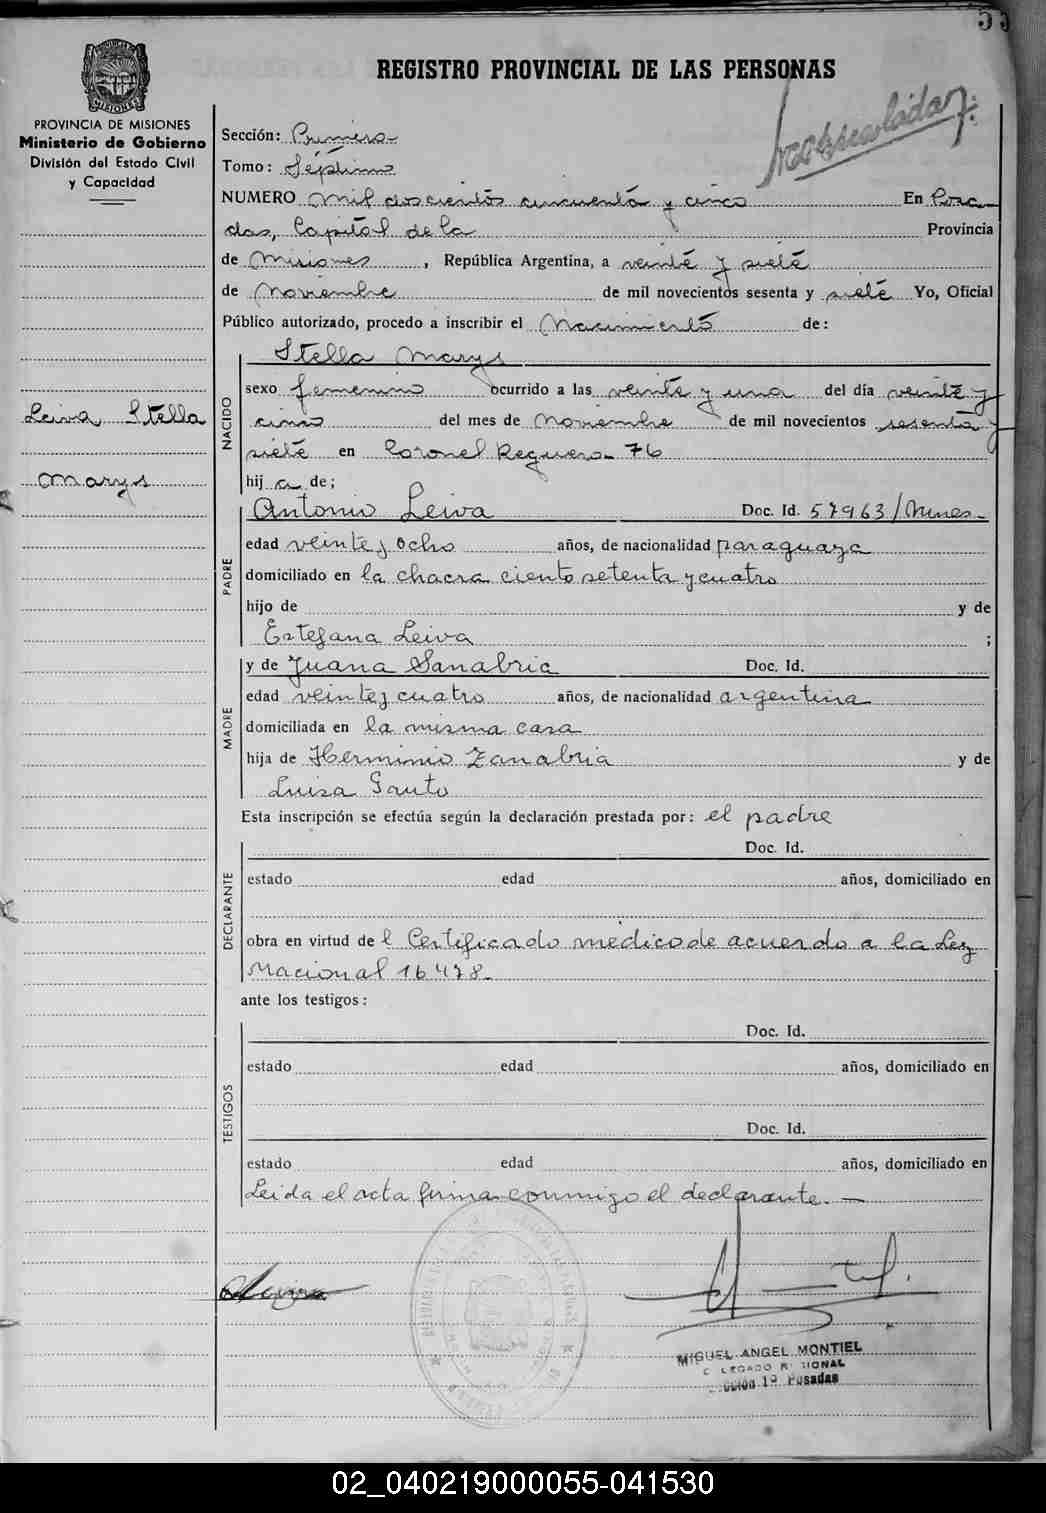 REGISTRO PROVINCIAL DE LAS PERSONAS
PROVINCIA DE MISIONES
Ministerio de Gobierno
División del Estado Civil
y Capacidad
Leiva Stella
Marys
Sección: Primera
Tomo: Séptimo
NUMERO Mil doscientos cincuenta y cinco En Posa
das, Capital de la Provincia
de Misiones, República Argentina, a veinte y siete
de Noviembre de mil novecientos sesenta y siete Yo, Oficial
Público autorizado, procedo a inscribir el Nacimiento de:
Stella Marys
NACIDO
sexo femenino ocurrido a las veinte y una del día veinte y
cinco del mes de Noviembre de mil novecientos sesenta y
siete en Coronel Reguera 76
hij a de;
PADRE
Antonio Leiva Doc. Id. 57963/Mnes.
edad veinte y ocho años, de nacionalidad paraguaya
domiciliado en la chacra ciento setenta y cuatro
hijo de y de
Estefana Leiva ;
MADRE
y de Juana Sanabria Doc. Id.
edad veinte y cuatro años, de nacionalidad argentina
domiciliada en la misma casa
hija de Herminio Zanabria y de
Luisa Santo
Esta inscripción se efectúa según la declaración prestada por: el padre
DECLARANTE
Doc. Id.
estado edad años, domiciliado en
obra en virtud de l Certificado médico de acuerdo a la Ley
Nacional 16478.
ante los testigos:
TESTIGOS
Doc. Id.
estado edad años, domiciliado en
Doc. Id.
estado edad años, domiciliado en
Leida el acta firma conmigo el declarante.—
MIGUEL ANGEL MONTIEL
1º Posadas
02_040219000055-041530